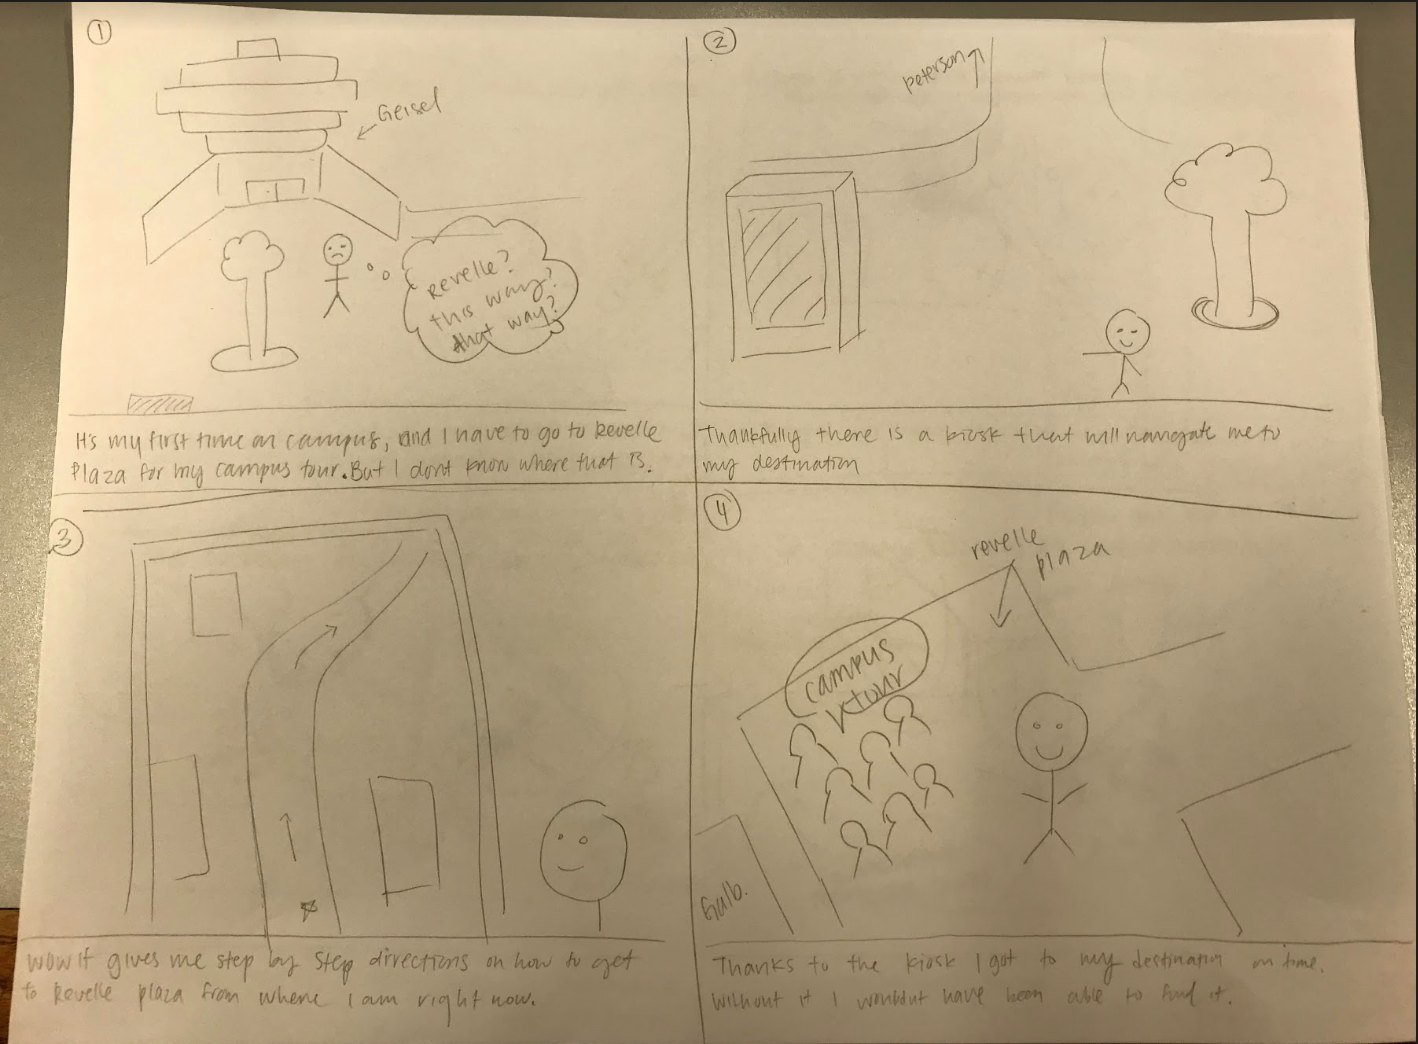 1
Geisel
Revelle?
this way?
that way?
It's my first time on campus, and I have to go to Revelle
Plaza for my campus tour. But I dont know where that is.
2
peterson
Thankfully there is a kiosk that will navigate me to
my destination
3
wow it gives me step by step directions on how to get
to Revelle plaza from where I am right now.
4
revelle
plaza
campus
tour
Galb.
Thanks to the kiosk I got to my destination on time.
Without it I wouldnt have been able to find it.